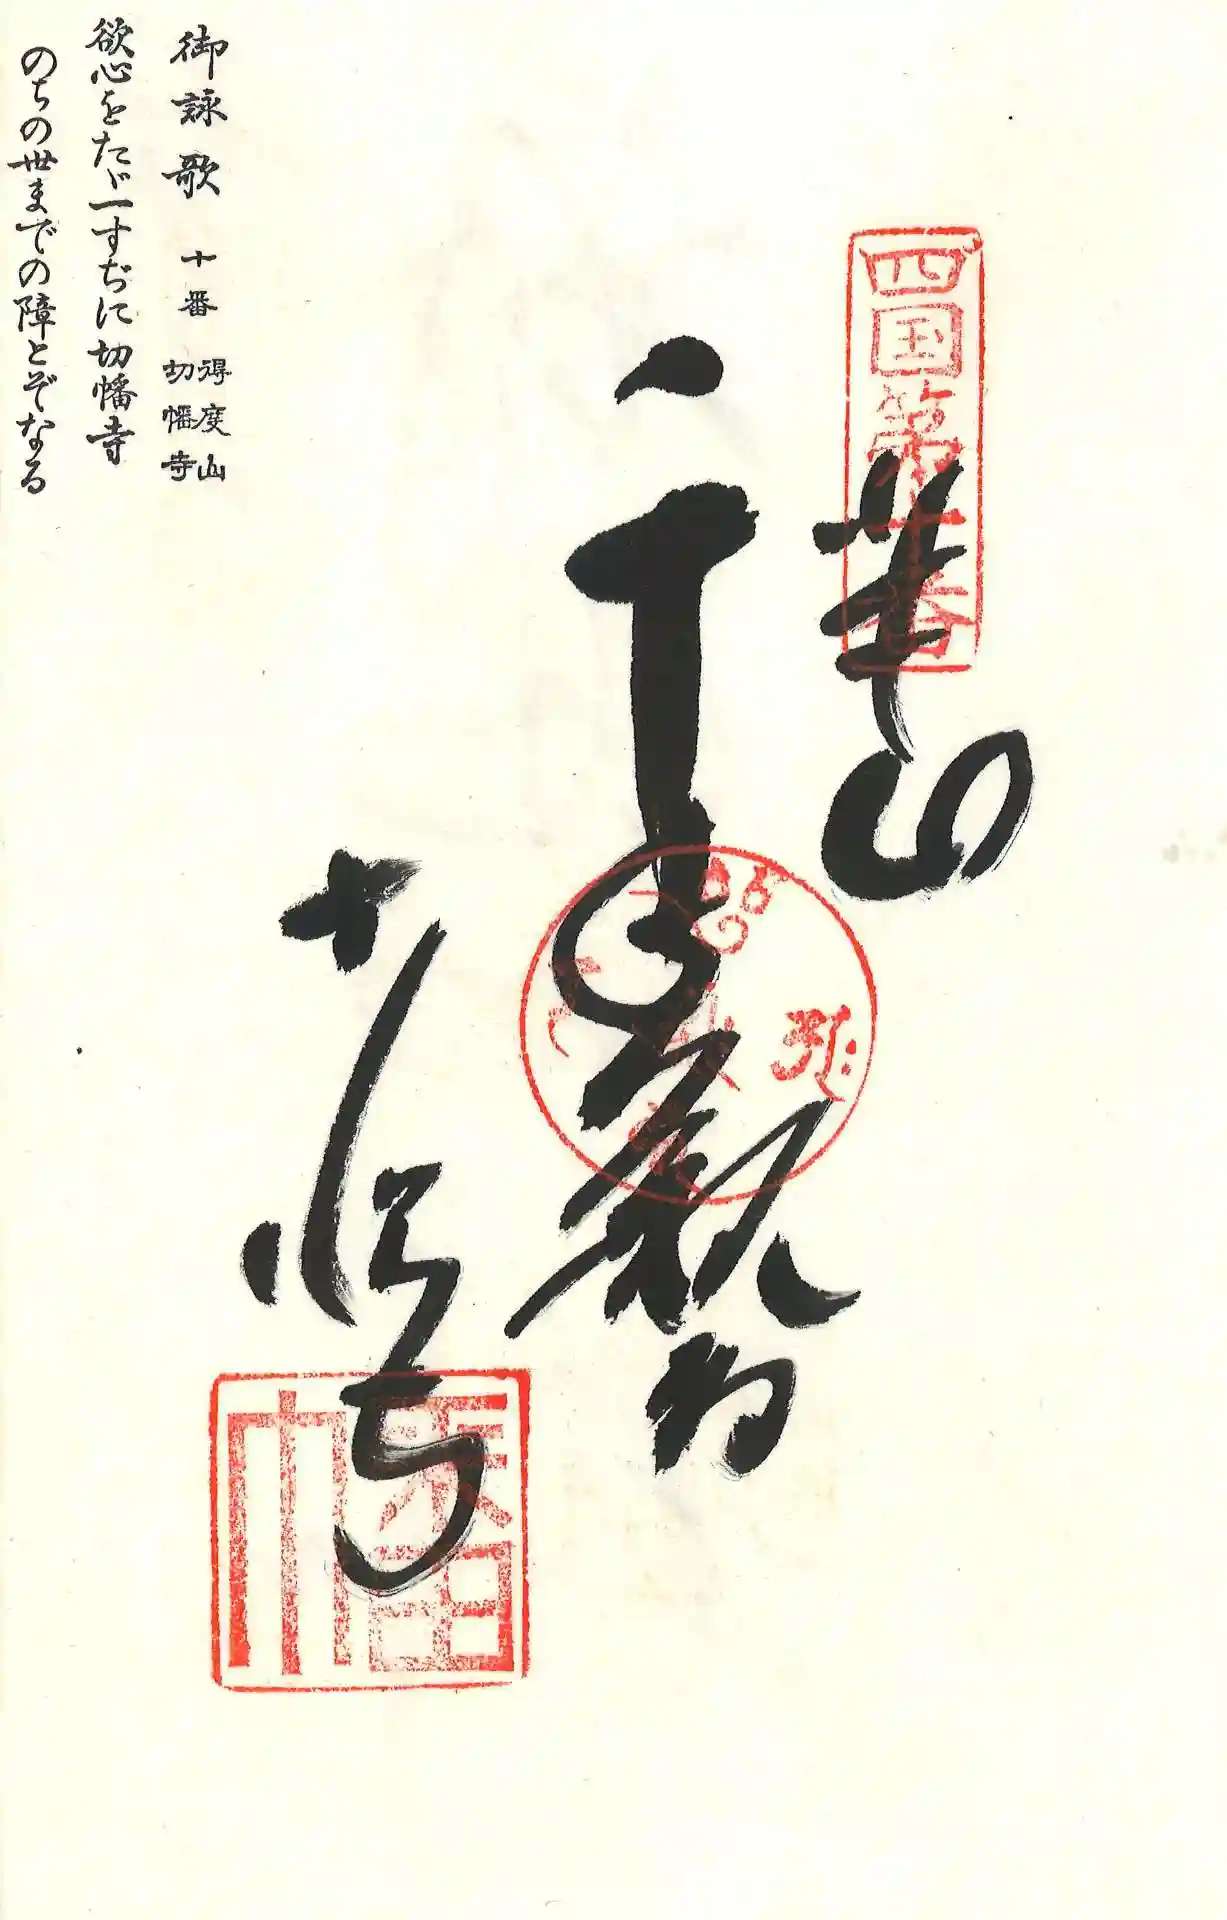 四国第十番
千手観音
切幡寺
幡
御詠歌 十番 得度山 切幡寺
欲心をたゞ一すぢに切幡寺
のちの世までの障とぞなる